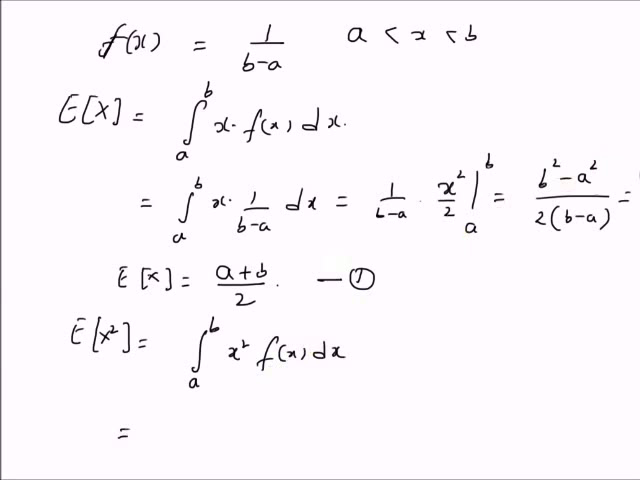 f(x) = 1/(b-a)   a < x < b
E[X] = ∫_a^b x · f(x) dx.
= ∫_a^b x · 1/(b-a) dx = 1/(b-a) · x²/2 |_a^b = (b² - a²)/(2(b-a)) =
E[x] = (a+b)/2. — ①
E[X²] = ∫_a^b x² f(x) dx
=